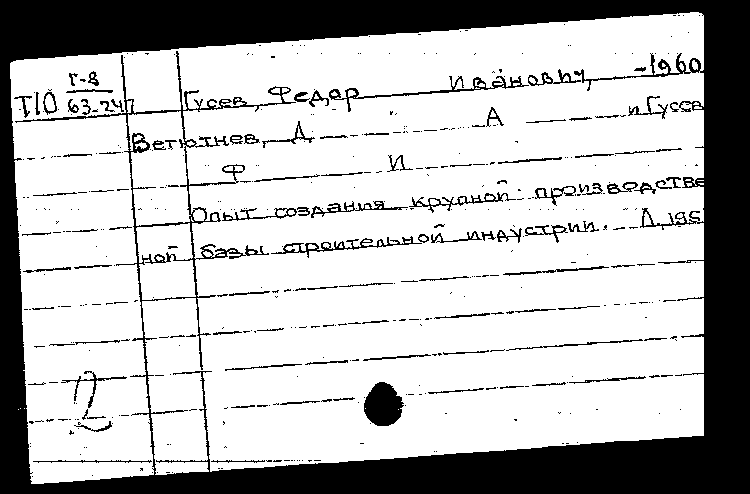 Т10 Г-8
63-247
Гусев, Федор Иванович, -1960
Ветютнев, Д А и Гусев
Ф И
Опыт создания крупной производстве
ной базы строительной индустрии. Л., 195
2